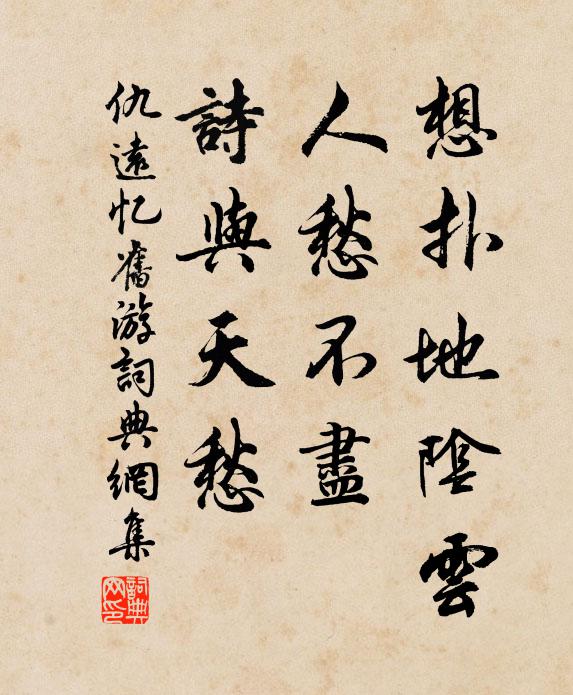 想扑地陰雲
人愁不盡
詩與天愁
仇遠忆舊游詞典網集
詞典
网印